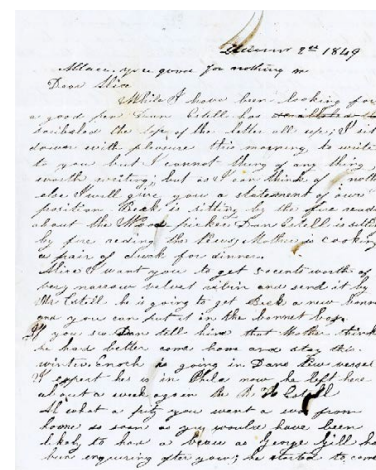 2nd 1849
you gone for nothing
Dear Alice
While I have been looking for
a good pen Dan Estill has
the top of the letter all up; I sit
down with pleasure this morning to write
to you but I cannot thing of any thing
worth writing; but as I can think of noth
else I will give you a statement of our
position Beck is sitting by the fire
about the Wood pickers Dan Estill is sitting
by fire reding the News, Mother is cooking
a pair of duck for dinner.
Alice I want you to get 50 cents worth of
very narrow velvet ribin and send it by
Mr Estill he is going to get Beck a new bonn
and you can put it in the bonnet box.
If you see Dan tell him that Mother think
he had better come home and stay this
winter Enoch is going in Dans New vessel
I expect he is in Phila now he left here
about a week agoon the R. H Estill
At what a pity you went a way from
home so soon as you would have been
likely to had a beau as George Gill has
been enquring after you; he started to come